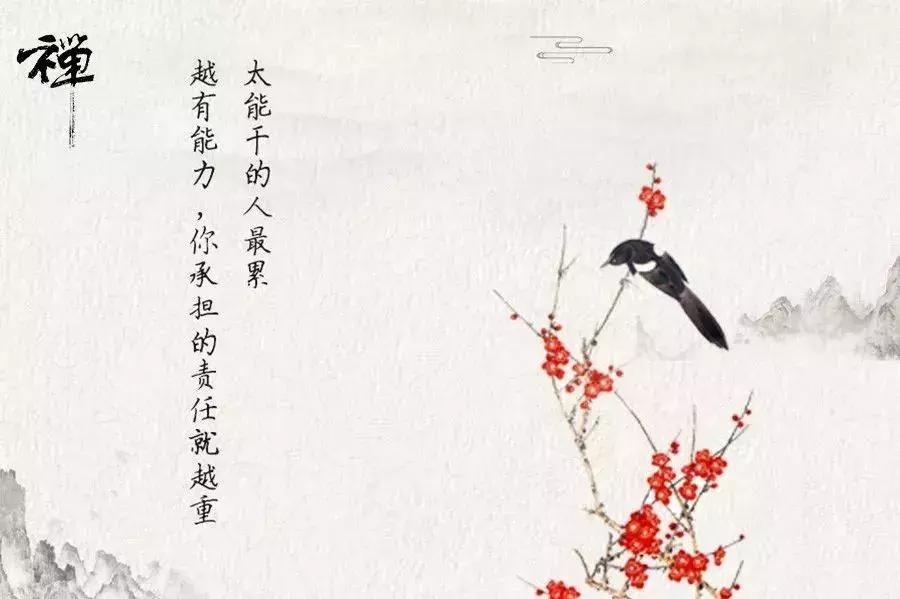 禅
太能干的人最累
越有能力，你承担的责任就越重